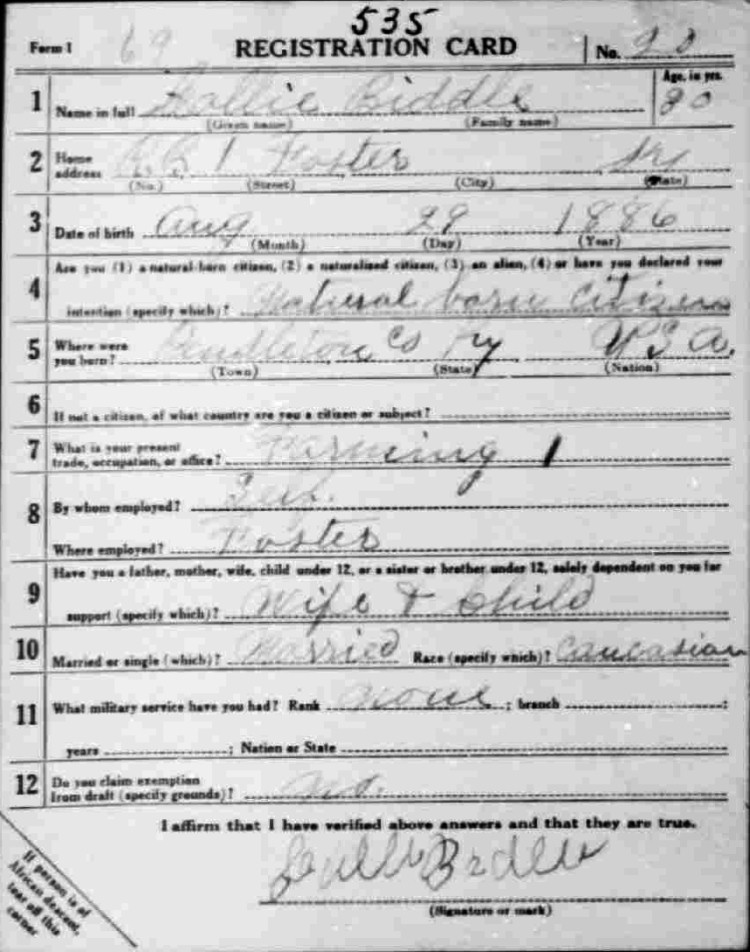 535
Form 1 69 REGISTRATION CARD No. 20
1 Name in full Hallie Biddle Age, in yrs. 30
(Given name) (Family name)
2 Home address R.R. 1 Foster Ky
(No.) (Street) (City) (State)
3 Date of birth Aug 29 1886
(Month) (Day) (Year)
4 Are you (1) a natural-born citizen, (2) a naturalized citizen, (3) an alien, (4) or have you declared your
intention (specify which)? Natural born citizen
5 Where were you born? Pendleton Co Ky U S A.
(Town) (State) (Nation)
6 If not a citizen, of what country are you a citizen or subject?
7 What is your present trade, occupation, or office? Farming 1
8 By whom employed? Self.
Where employed? Foster
9 Have you a father, mother, wife, child under 12, or a sister or brother under 12, solely dependent on you for
support (specify which)? Wife & Child
10 Married or single (which)? Married Race (specify which)? Caucasian
11 What military service have you had? Rank None ; branch ;
years ; Nation or State
12 Do you claim exemption from draft (specify grounds)? No.
I affirm that I have verified above answers and that they are true.
Biddle
(Signature or mark)
If person is of
African descent,
tear off this
corner